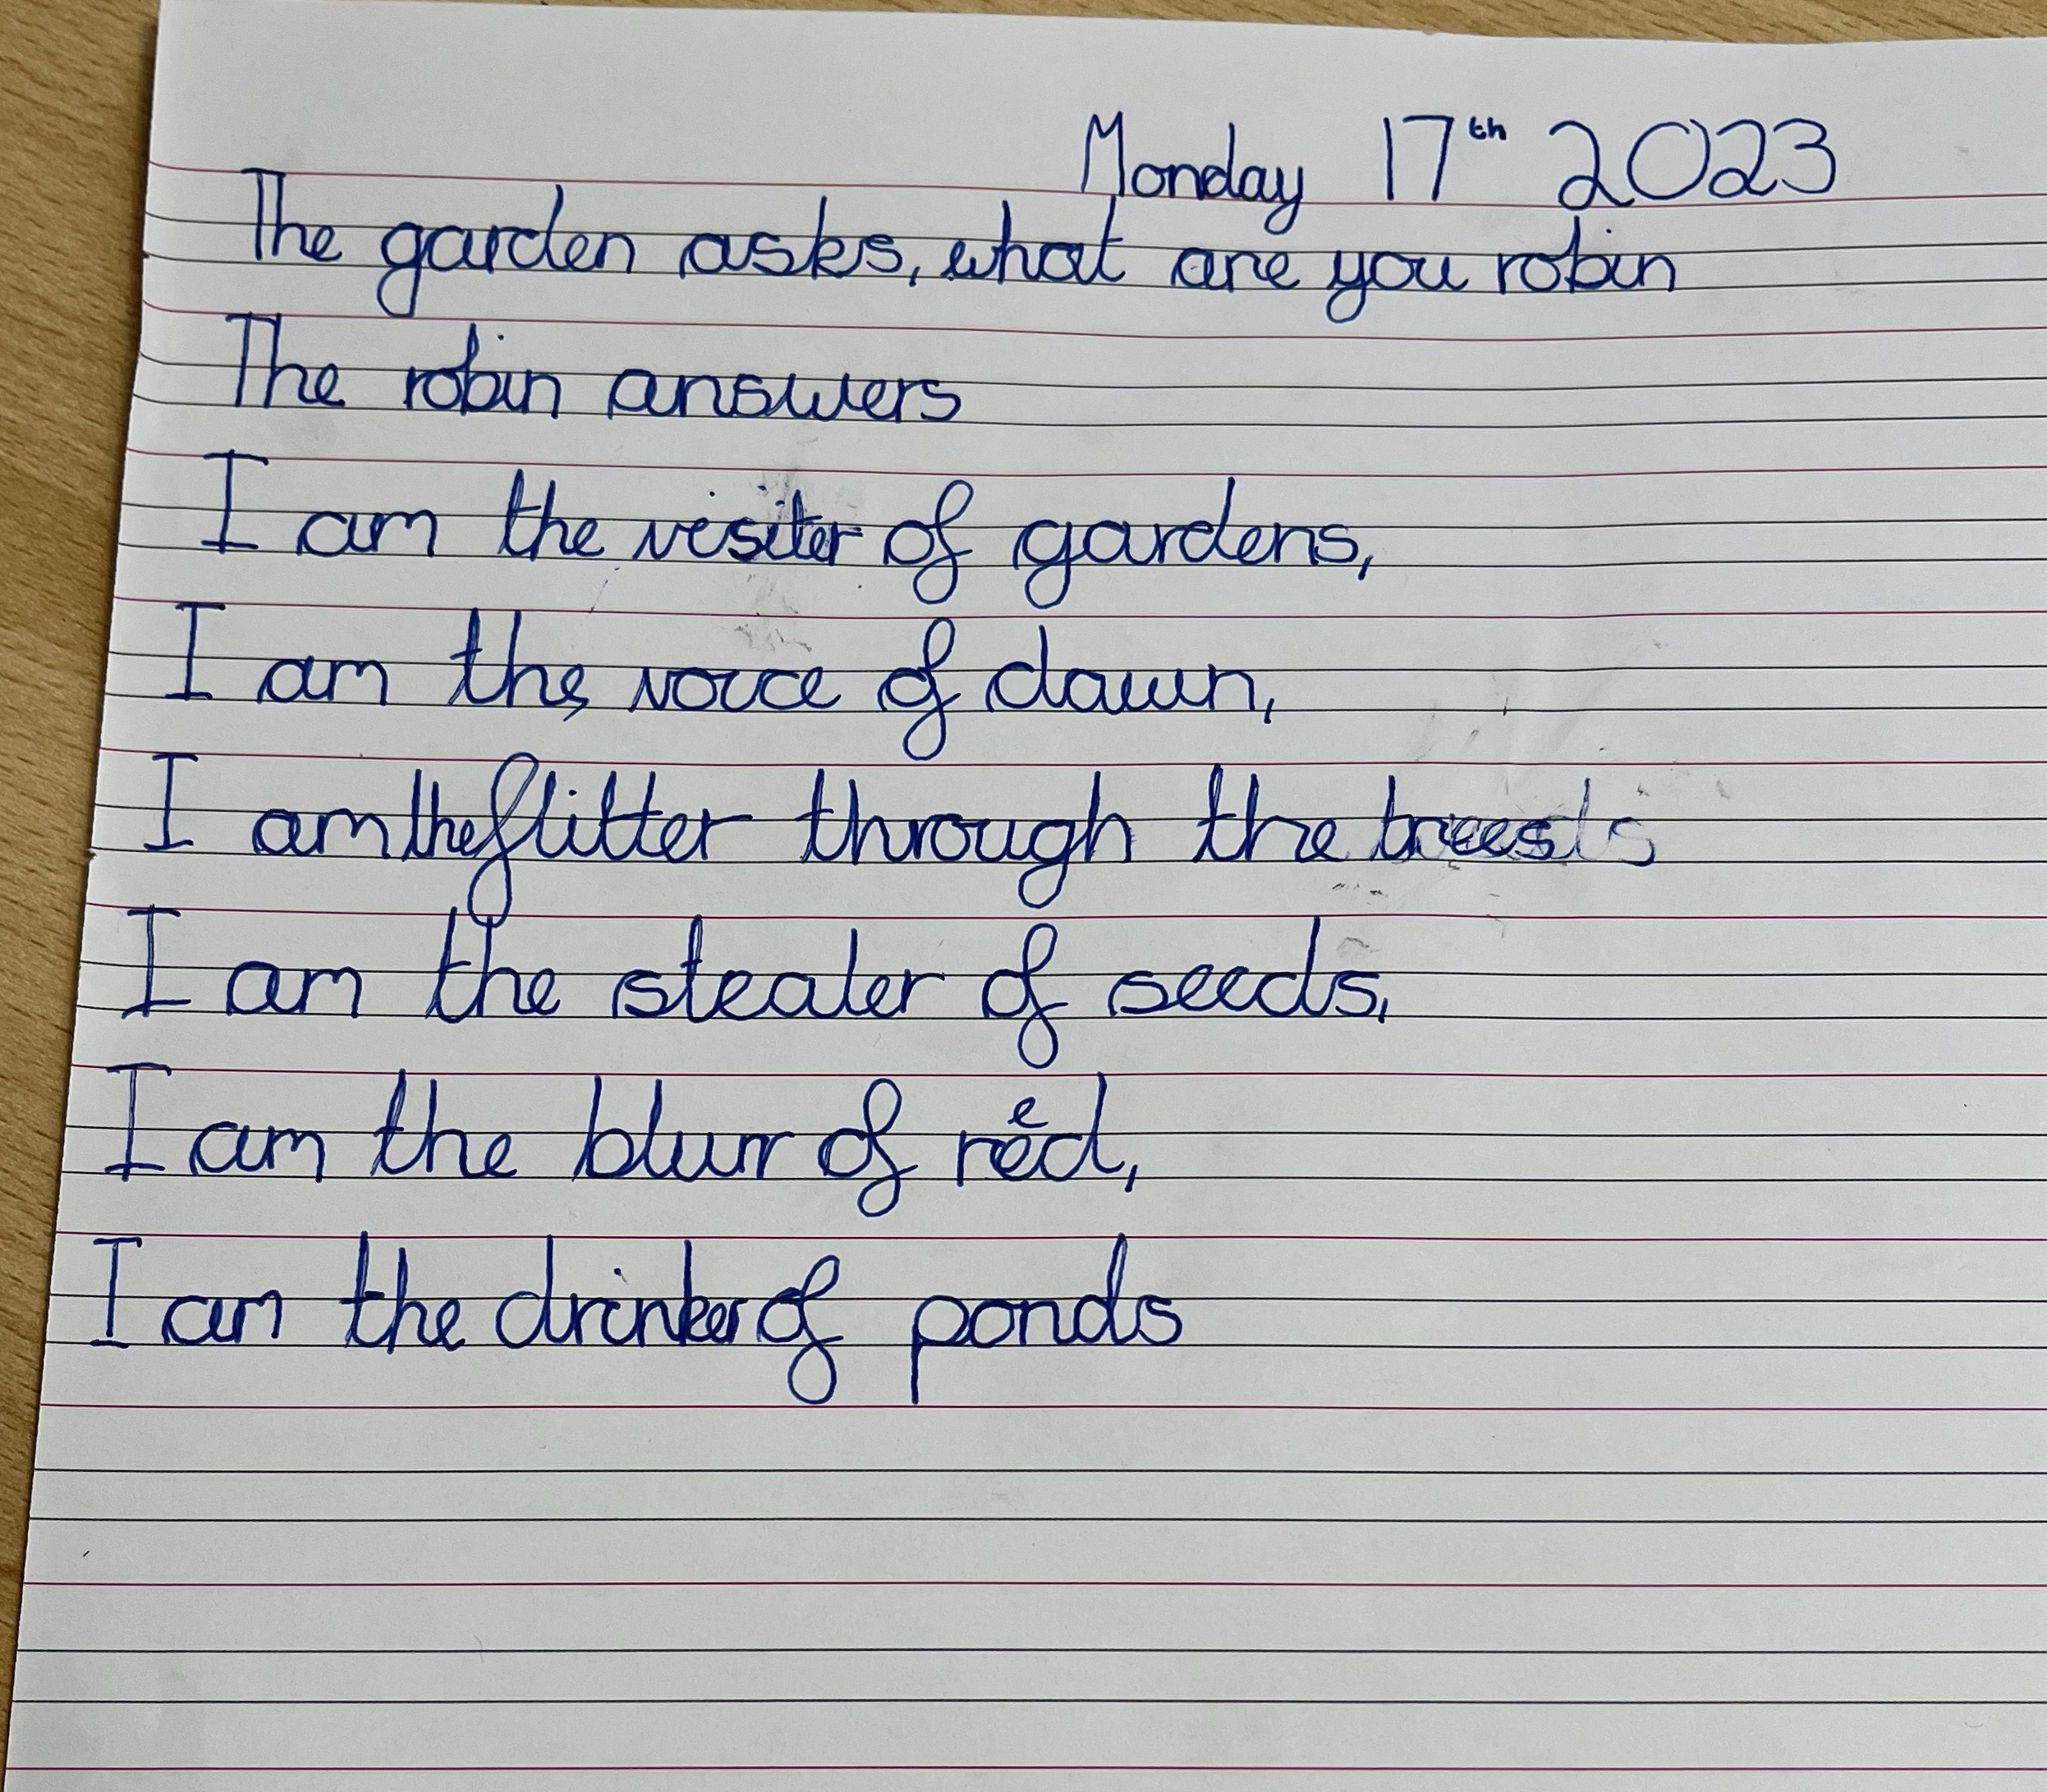 Monday 17th 2023
The garden asks, what are you robin
The robin answers
I am the visiter of gardens,
I am the, voice of dawn,
I am the flitter through the trees
I am the stealer of seeds,
I am the blurr of red,
I am the drinker of ponds